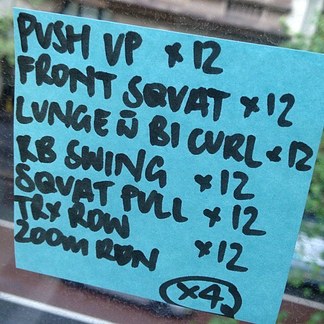 PUSH UP x12
FRONT SQUAT x12
LUNGE W BI CURL x12
KB SWING x12
SQUAT PULL x12
TRX ROW x12
ZOOM RUN
x4